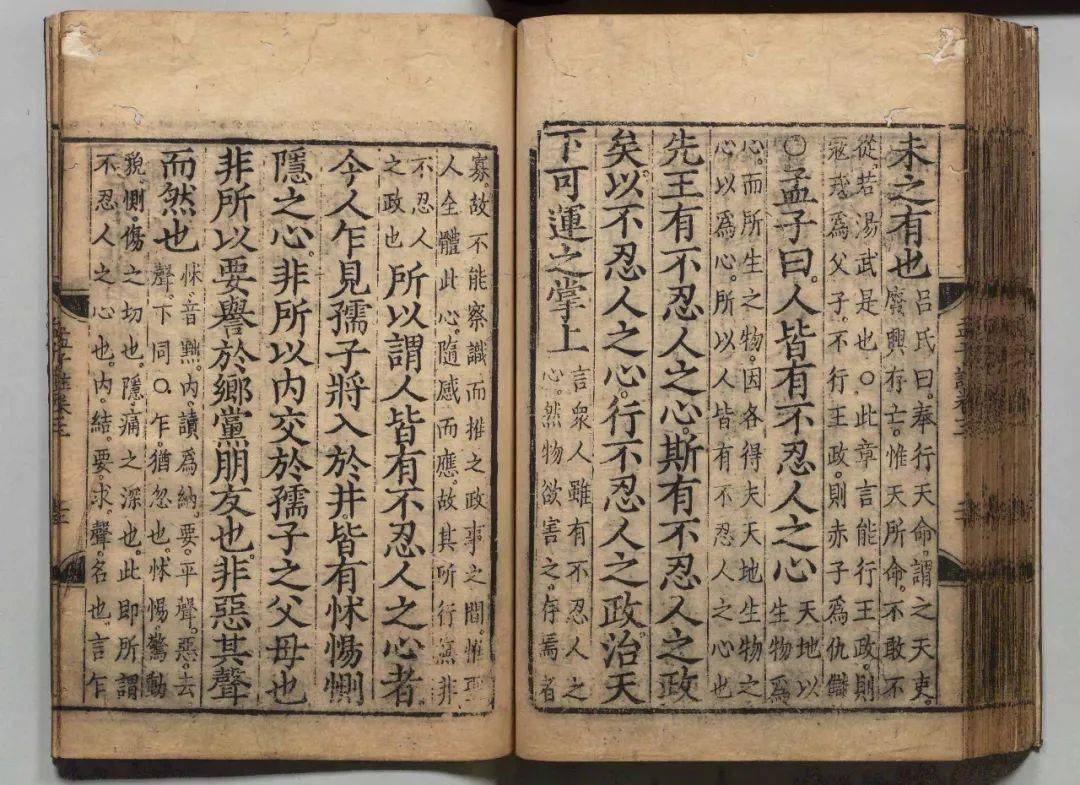 未之有也
呂氏曰。奉行天命。謂之天吏。
廢興存亡。惟天所命。不敢不
從。若湯武是也。○此章言能行王政。則
寇戎。爲父子。不行王政。則赤子爲仇讎
○孟子曰。人皆有不忍人之心
天地以
生物爲
心。而所生之物。因各得夫天地生物之
心以爲心。所以人皆有不忍人之心也
先王有不忍人之心。斯有不忍人之政
矣。以不忍人之心。行不忍人之政。治天
下可運之掌上
言衆人雖有不忍人之
心。然物欲害之。存焉者
寡。故不能察識而推之政事之間。惟聖
人全體此心。隨感而應。故其所行無非
不忍人
之政也
所以謂人皆有不忍人之心者
今人乍見孺子將入於井。皆有怵惕惻
隱之心。非所以内交於孺子之父母也
非所以要譽於鄉黨朋友也。非惡其聲
而然也
怵音黜。内讀爲納。要平聲。惡去
聲。下同○乍。猶忽也。怵惕驚動
貌。惻。傷之切也。隱。痛之深也。此即所謂
不忍人之心也。内。結。要。求。聲。名也。言乍